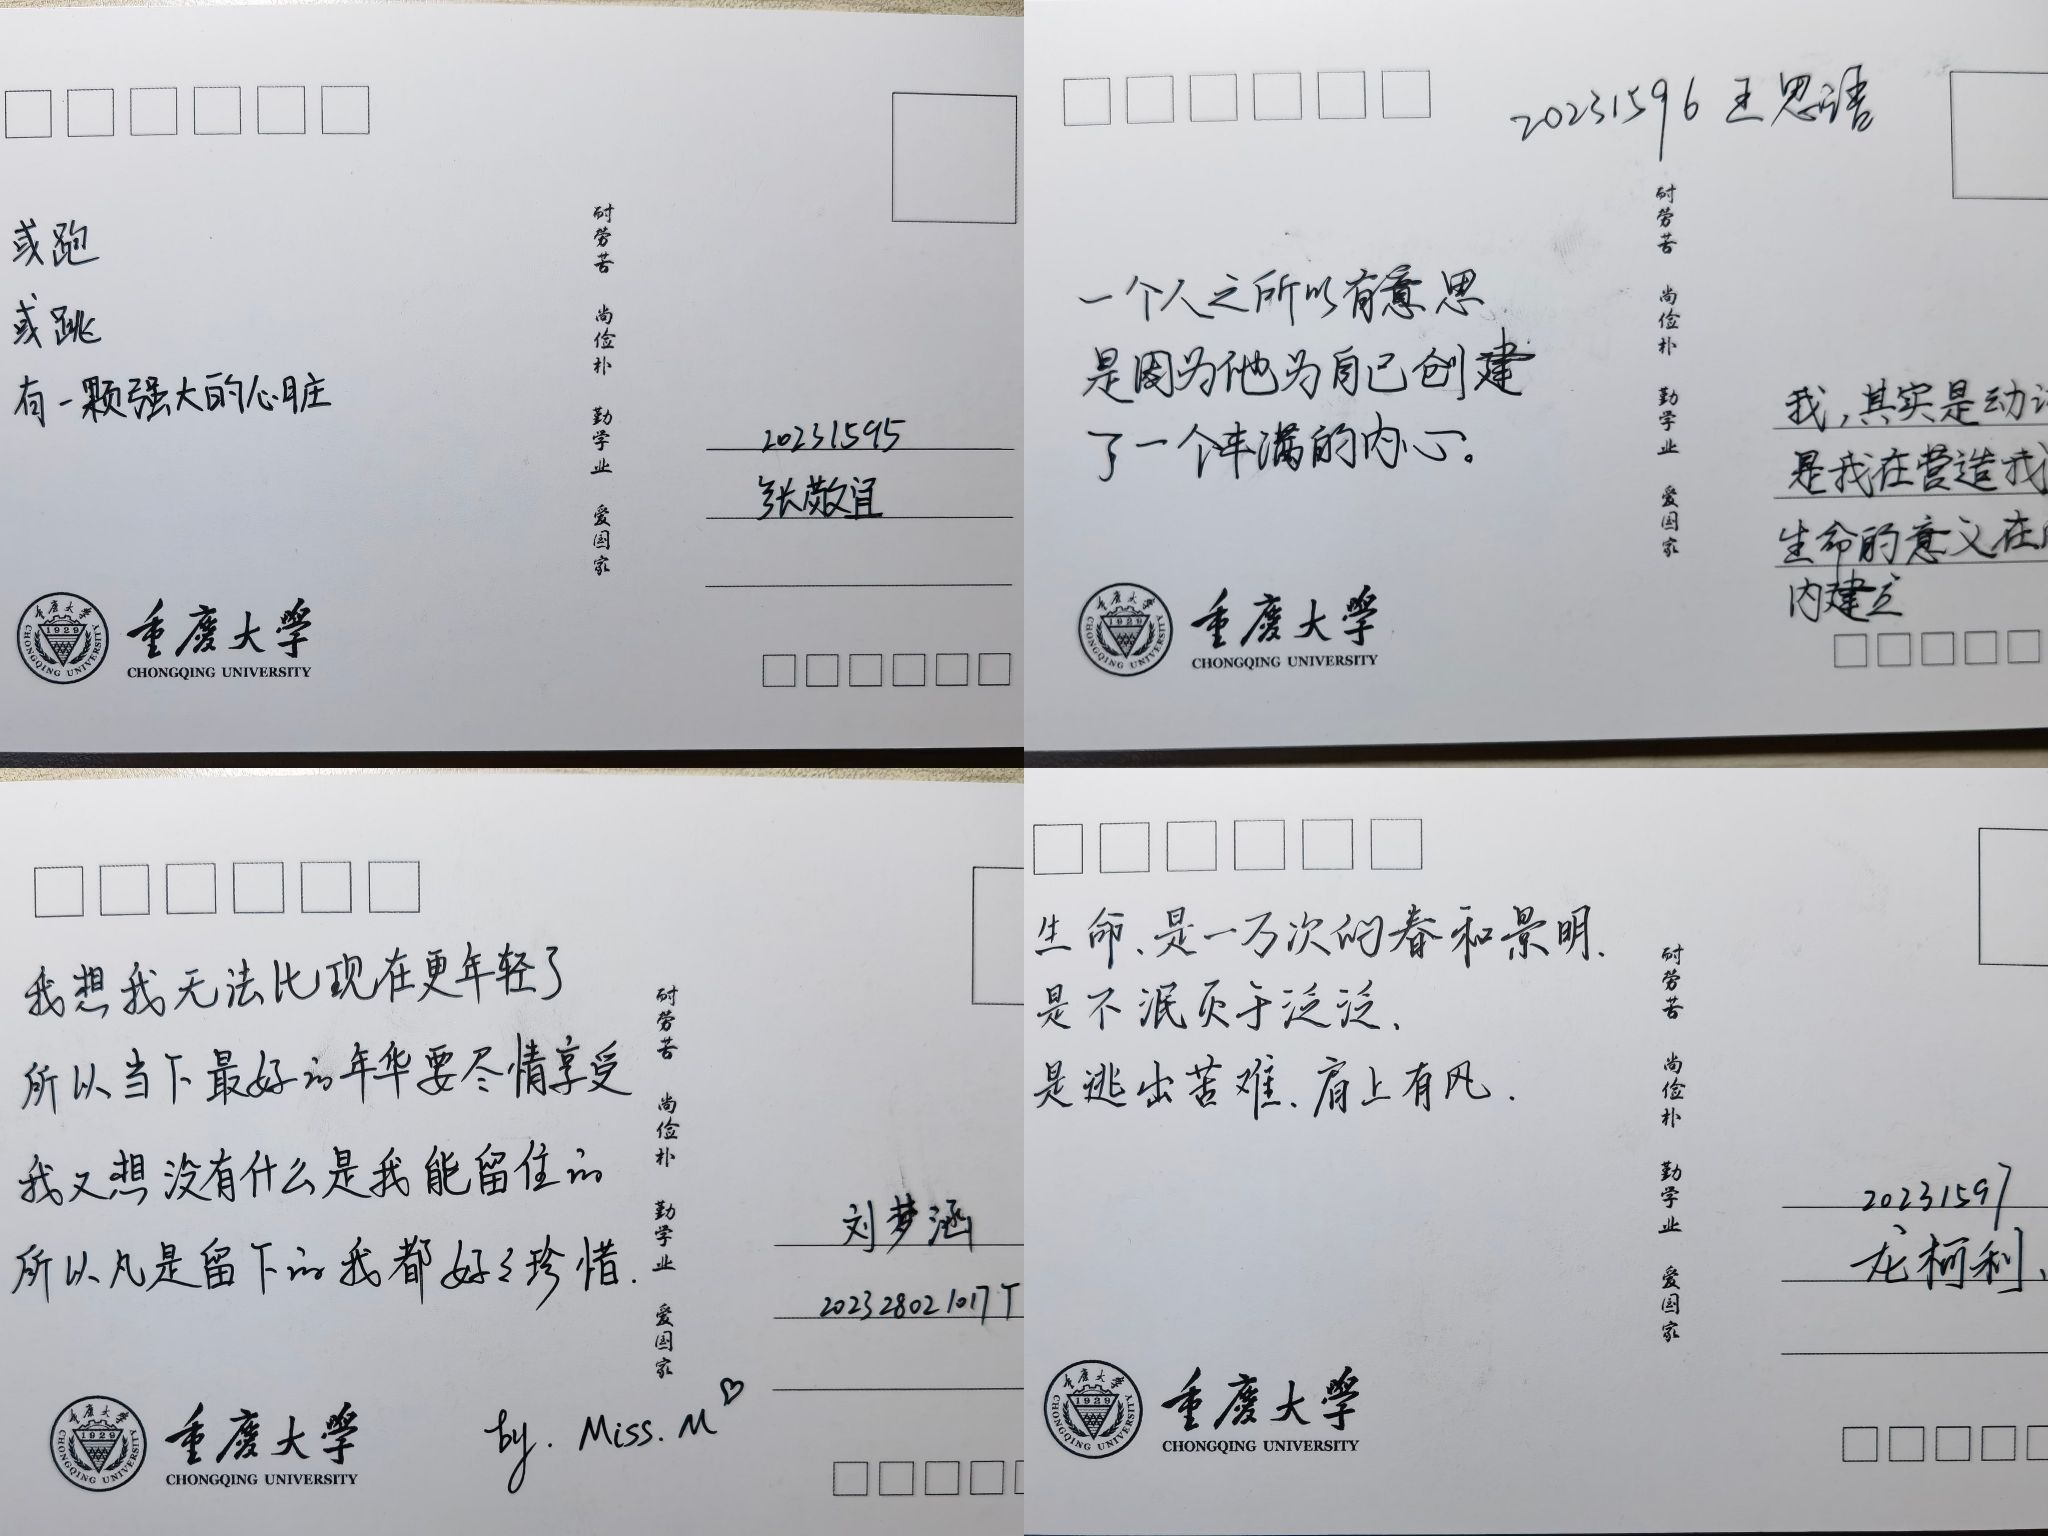 或跑
或跳
有一颗强大的心脏
耐劳苦 尚俭朴 勤学业 爱国家
20231595
张敬宜
重庆大学
1929
CHONGQING UNIVERSITY
重庆大学
CHONGQING UNIVERSITY
20231596 王思语
一个人之所以有意思
是因为他为自己创建
了一个丰满的内心。
耐劳苦 尚俭朴 勤学业 爱国家
我,其实是动
是我在营造我
生命的意义在
内建立
重庆大学
1929
CHONGQING UNIVERSITY
重庆大学
CHONGQING UNIVERSITY
我想我无法比现在更年轻了
所以当下最好的年华要尽情享受
我又想没有什么是我能留住的
所以凡是留下的我都好好珍惜.
耐劳苦 尚俭朴 勤学业 爱国家
刘梦涵
202328021017T
by. Miss. M
重庆大学
1929
CHONGQING UNIVERSITY
重庆大学
CHONGQING UNIVERSITY
生命、是一万次的春和景明.
是不泯灭于泛泛、
是逃出苦难、肩上有风.
耐劳苦 尚俭朴 勤学业 爱国家
20231597
龙柯利、
重庆大学
1929
CHONGQING UNIVERSITY
重庆大学
CHONGQING UNIVERSITY